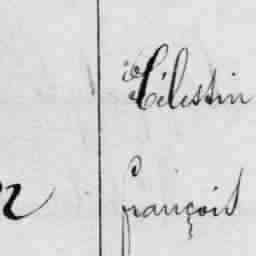 Célestin
françois